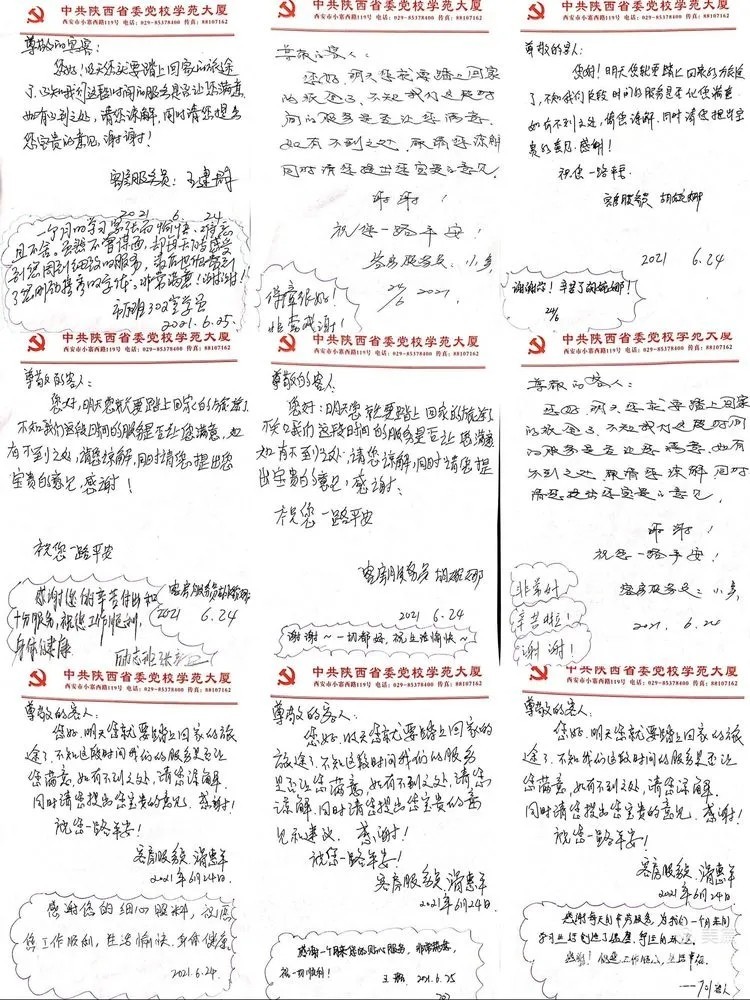 中共陕西省委党校学苑大厦
西安市小寨西路119号 电话：029-85378400 传真：88107162
尊敬的宾客：
您好！明天您就要踏上回家的旅途
了，不知我们这段时间的服务是否让您满意，
如有不到之处，请您谅解，同时请您提出
您宝贵的意见，谢谢！
客房服务员：王建群
2021 6. 24
一个月的学习紧张而愉快，
且不舍。
到您周到细致的服务，
非常满意！谢谢！
302室学员
2021.6.25.
中共陕西省委党校学苑大厦
西安市小寨西路119号 电话：029-85378400 传真：88107162
尊敬的客人：
您好，明天您就要踏上回家
的旅途了，不知我们这段时
间的服务是否让您满意，
如有不到之处，敬请谅解
同时请您提出您宝贵的意见，
谢谢！
祝您一路平安！
客房服务员：小乡，
24/6 2021.
保障很好！
非常感谢！
中共陕西省委党校学苑大厦
西安市小寨西路119号 电话：029-85378400 传真：88107162
尊敬的客人：
您好！明天您就要踏上回家的旅途
了，不知我们这段时间的服务是否让您满意
如有不到之处，请您谅解，同时请您提出宝
贵的意见，感谢！
祝您一路平安
客房服务员 胡娜
2021 6.24
谢谢您！辛苦了胡娜！
24/6
中共陕西省委党校学苑大厦
西安市小寨西路119号 电话：029-85378400 传真：88107162
尊敬的客人：
您好，明天您就要踏上回家的旅途了，
不知我们这段时间的服务是否让您满意，如
有不到之处，请您谅解，同时请您提出您
宝贵的意见，感谢！
祝您一路平安
客房服务员胡娜
2021 6.24
感谢您的辛苦付出和
十分服务，祝您工作顺利，
身体健康
励志班张
中共陕西省委党校学苑大厦
西安市小寨西路119号 电话：029-85378400 传真：88107162
尊敬的客人：
您好：明天您就要踏上回家的旅途了
不知我们这段时间的服务是否让您满意
如有不到之处，请您谅解，同时请您提
出宝贵的意见，感谢：
祝您一路平安
客房服务员 胡娜
2021 6.24
谢谢～一切都好，祝生活愉快～
中共陕西省委党校学苑大厦
西安市小寨西路119号 电话：029-85378400 传真：88107162
尊敬的客人：
您好，明天您就要踏上回家
的旅途了，不知我们这段时间
的服务是否让您满意，如有
不到之处 敬请您谅解 同时
请您提出您宝贵的意见，
谢谢！
祝您一路平安！
客房服务员：小乡，
2021. 6.24
非常好
辛苦啦！
谢谢！
中共陕西省委党校学苑大厦
西安市小寨西路119号 电话：029-85378400 传真：88107162
尊敬的客人：
您好，明天您就要踏上回家的旅
途了，不知这段时间我们的服务是否让
您满意，如有不到之处，请您谅解，
同时请您提出您宝贵的意见，感谢！
祝您一路平安！
客房服务员 滑惠平
2021年6月24日.
感谢您的细心照料，祝愿
您工作顺利，生活愉快，身体健康
2021.6.24.
中共陕西省委党校学苑大厦
西安市小寨西路119号 电话：029-85378400 传真：88107162
尊敬的客人：
您好，明天您就要踏上回家的
旅途了，不知这段时间我们的服务
是否让您满意，如有不到之处，请您
谅解，同时请您提出您宝贵的意
见和建议，感谢！
祝您一路平安！
客房服务员 滑惠平
2021年6月24日.
感谢一个月来您的贴心服务，非常满意，
祝一切顺利！
2021.6.25
中共陕西省委党校学苑大厦
西安市小寨西路119号 电话：029-85378400 传真：88107162
尊敬的客人：
您好，明天您就要踏上回家的旅
途了，不知这段时间我们的服务是否让
您满意，如有不到之处，请您谅解，
同时请您提出您宝贵的意见，感谢！
祝您一路平安！
客房服务员 滑惠平
2021年6月24日.
感谢每天的贴心服务，为我们一个月来的
感谢！祝您工作顺心，生活幸福
—701客人
美篇